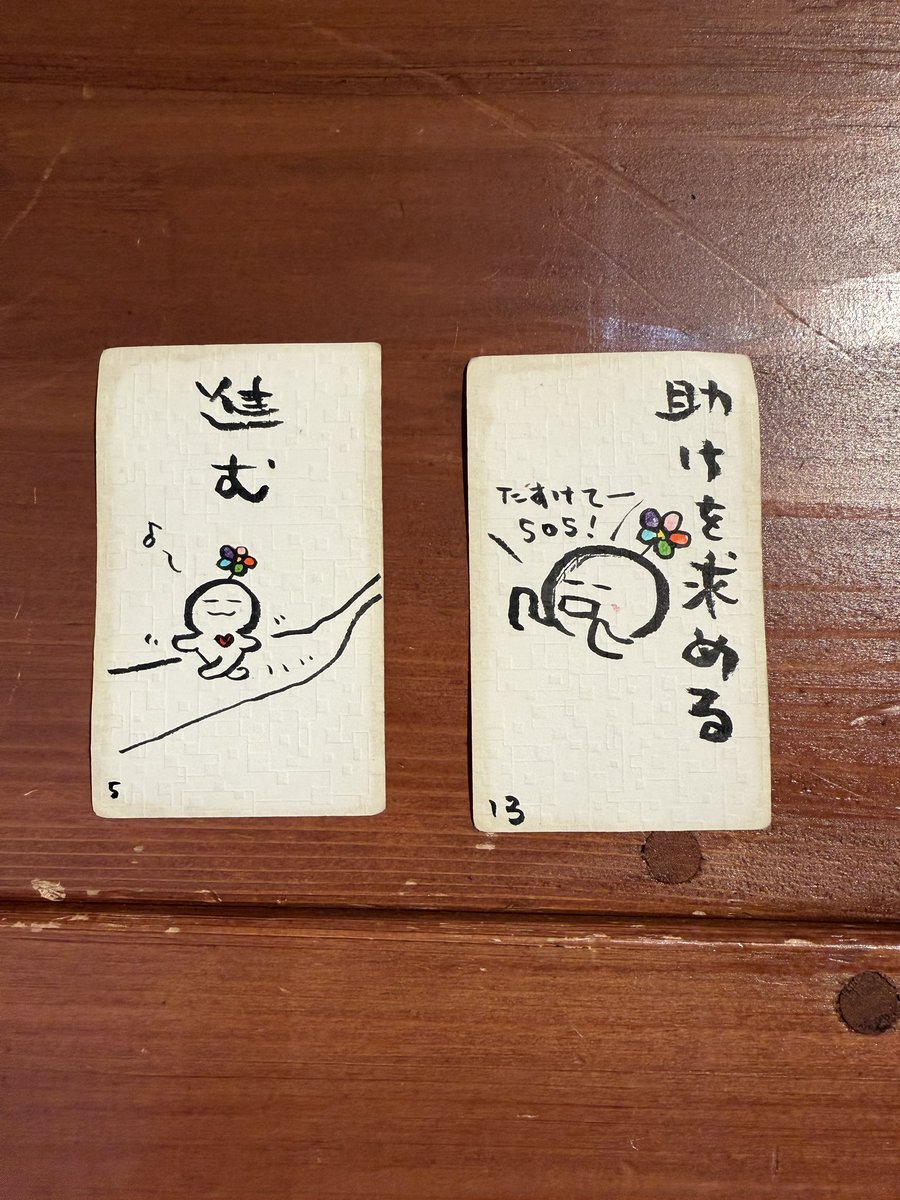 進む
5
助けを求める
たすけてー
SOS!
13